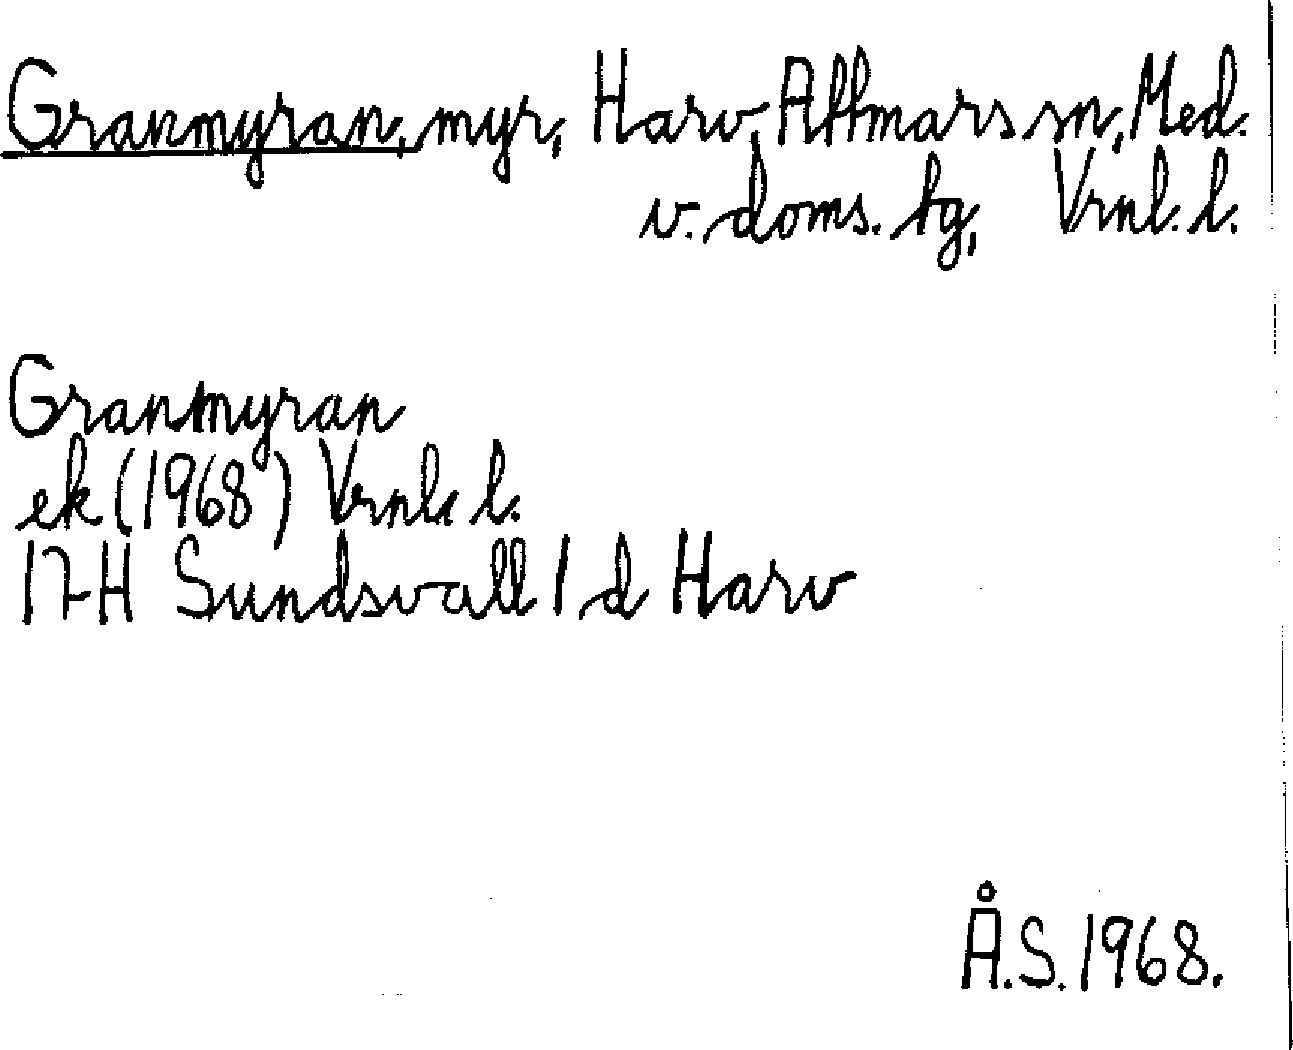 Granmyran, myr, Harv, Attmars sn, Med.
v. doms. tg, Vrnl. l.
Granmyran
ek (1968) Vrnl. l.
17H Sundsvall 1 d Harv
Å.S. 1968.